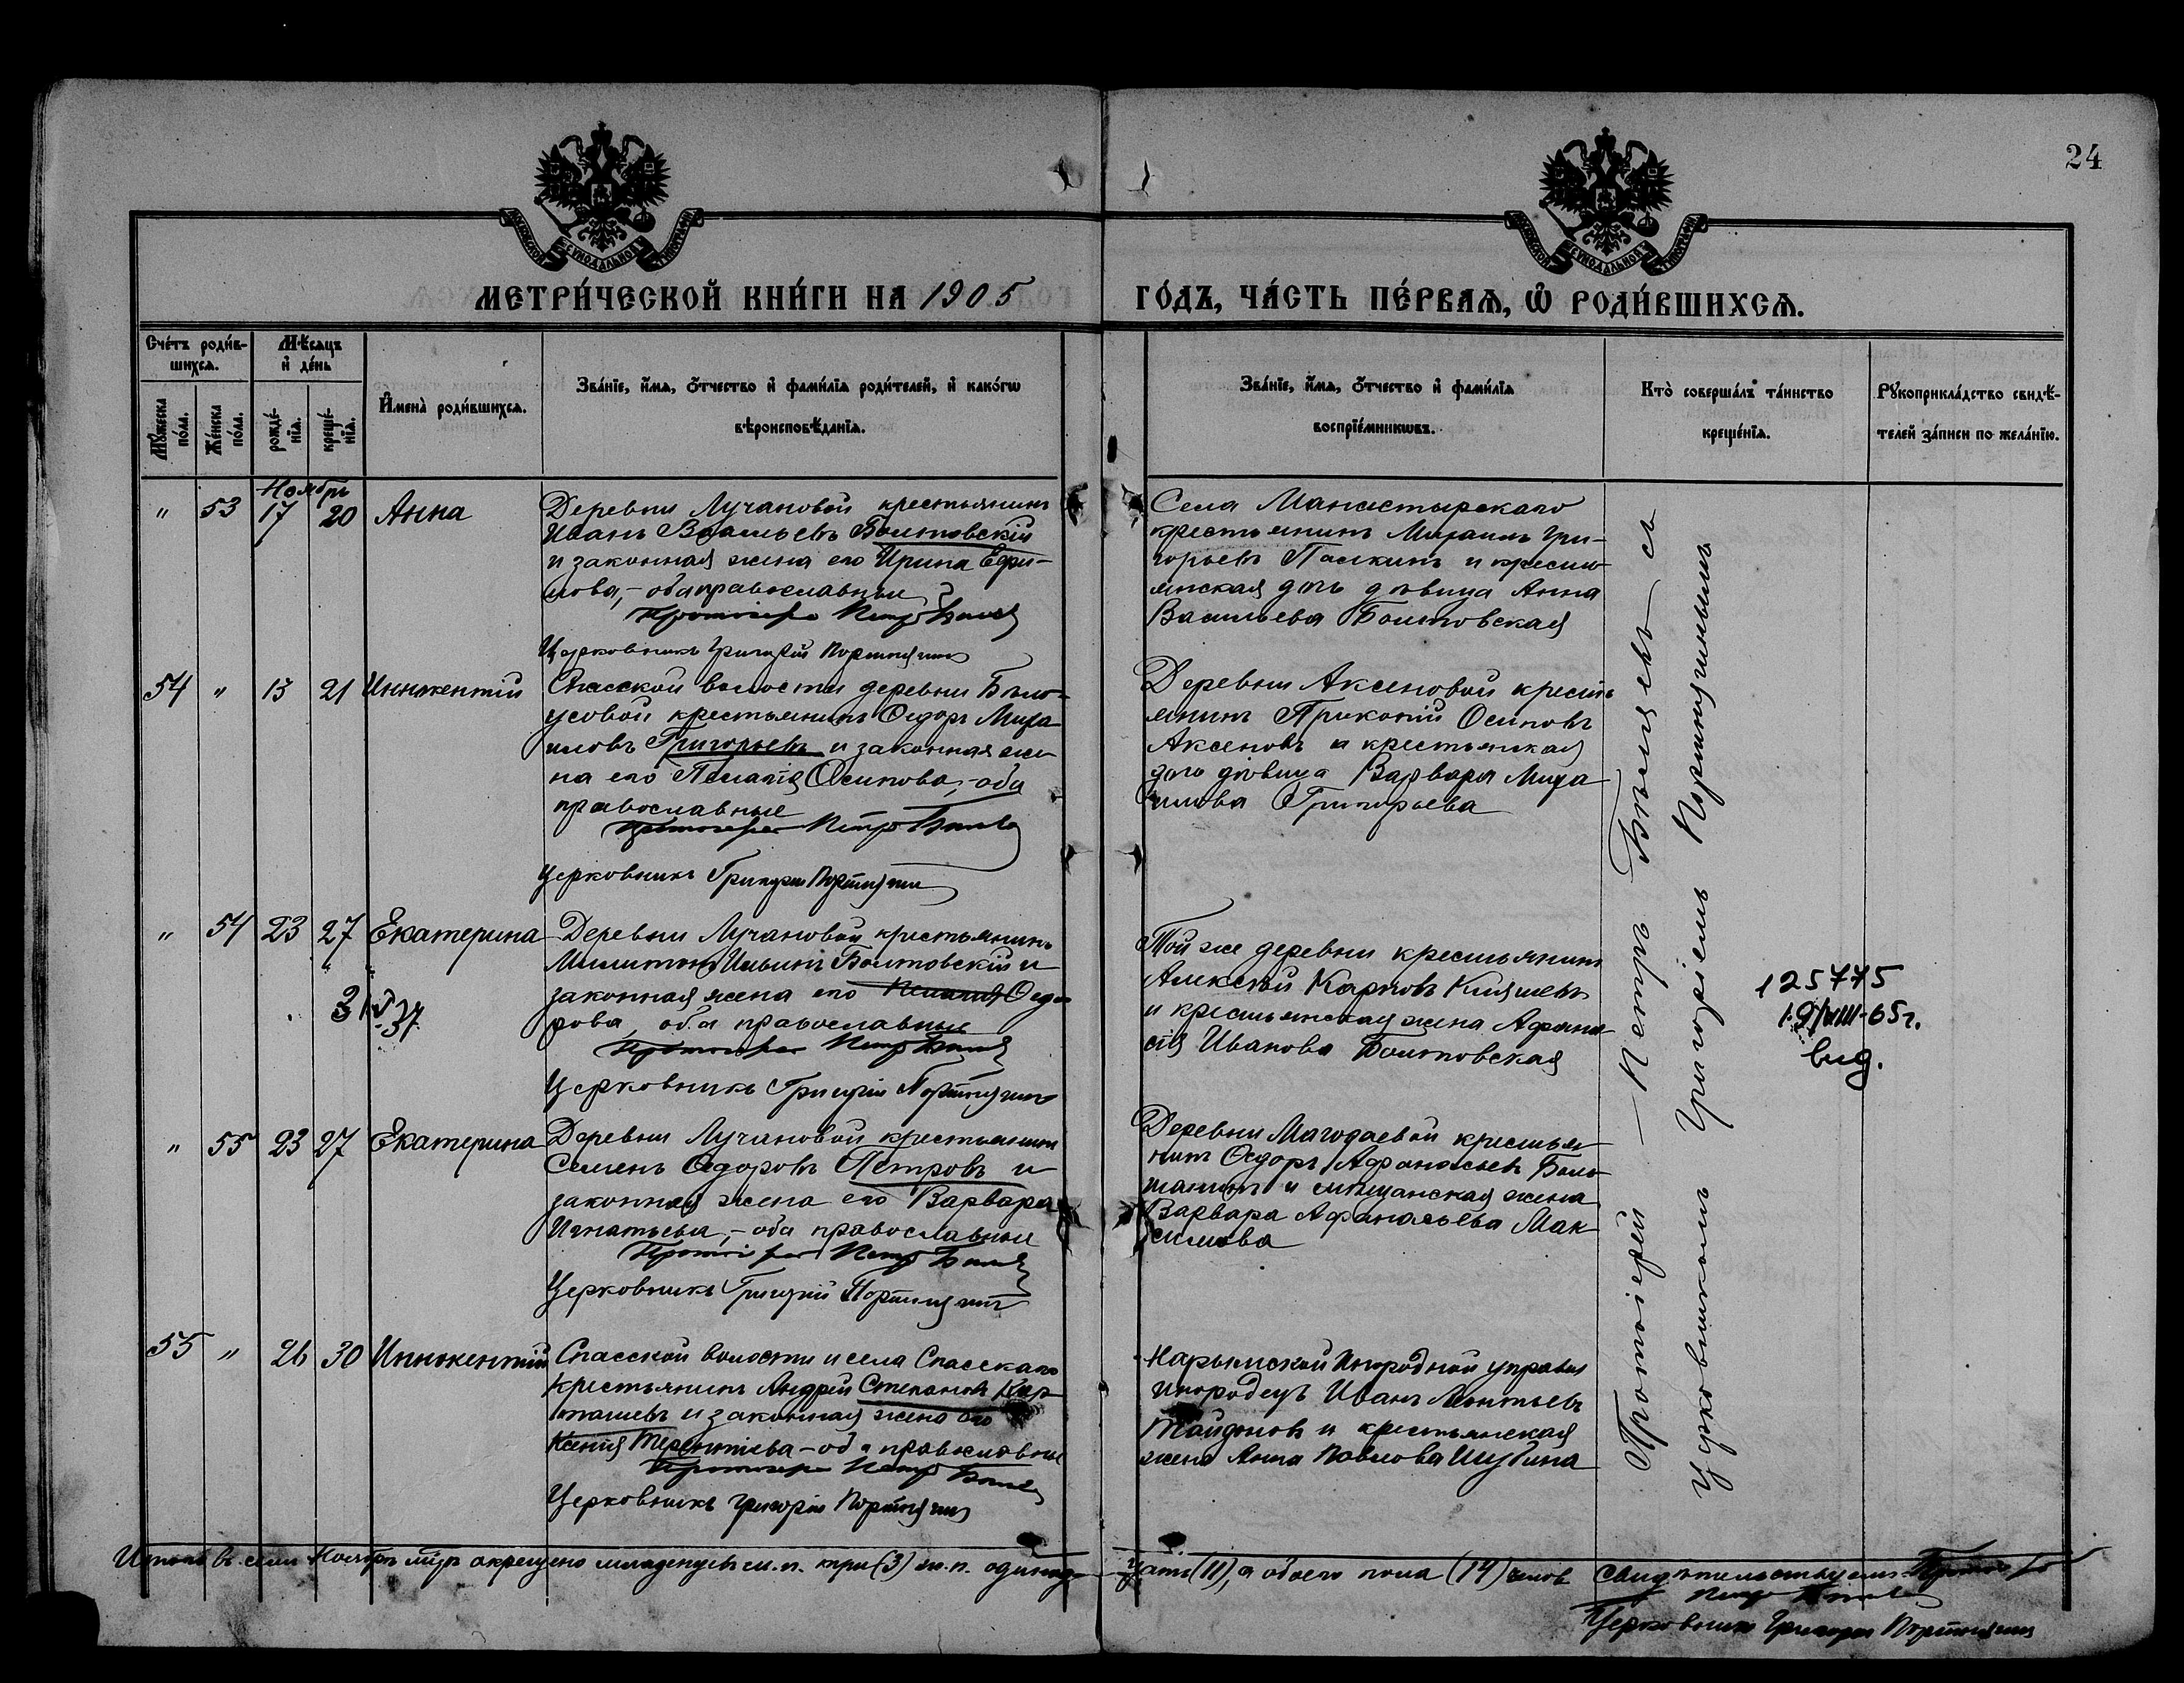 24
МОСКОВСКОЙ СѴНОДАЛЬНОЙ ТИПОГРАФІИ
МОСКОВСКОЙ СѴНОДАЛЬНОЙ ТИПОГРАФІИ
МЕТРИ́ЧЕСКОЙ КНИ́ГИ НА 1905
ГО́ДЪ, ЧА́СТЬ ПЕ́РВАѦ, Ѿ РОДИ́ВШИХСѦ.
Сче́тъ роди́в-
шихсѧ.
Мꙋ́жеска
по́ла.
Же́нска
по́ла.
Мѣ́сѧцъ
и҆ де́нь
рожде́-
нїѧ.
креще́-
нїѧ.
И҆мена̀ роди́вшихсѧ.
Зва́нїе, и҆́мѧ, ѻ҆́тчество и҆ фами́лїѧ роди́телей, и҆ како́гѡ
вѣроисповѣ́данїѧ.
Зва́нїе, и҆́мѧ, ѻ҆́тчество и҆ фами́лїѧ
воспрїе́мникѡвъ.
Кто̀ соверша́лъ та́инство
креще́нїѧ.
Рꙋкоприкла́дство свидѣ́-
телей за́писи по жела́нїю.
Ноябрь
" 53 17 20 Анна
Деревни Лучановой крестьянинъ
Иванъ Васильевъ Болтовскій
и законная жена его Ирина Ефи-
мова,- оба православные
Протоіерей Петръ Бѣляевъ
Церковникъ Григорій Портнягинъ
Села Монастырскаго
крестьянинъ Михаилъ Гри-
горьевъ Палкинъ и кресть-
янская дочь дѣвица Анна
Васильева Болтовская
54 " 15 21 Иннокентій
Спасской волости деревни Бѣло-
усовой крестьянинъ Ѳедоръ Миха-
иловъ Григорьевъ и законная же-
на его Пелагія Осипова,- оба
православные
Протоіерей Петръ Бѣляевъ
Церковникъ Григорій Портнягинъ
Деревни Аксеновой кресть-
янинъ Прокопій Осиповъ
Аксеновъ и крестьянская
дочь дѣвица Варвара Миха-
илова Григорьева
" 54 23 27 Екатерина
Деревни Лучановой крестьянинъ
Ильинъ Болтовскій и
законная жена его Пелагія Ѳедо-
рова, оба православные
Протоіерей Петръ Бѣляевъ
Церковникъ Григорій Портнягинъ
Той же деревни крестьянинъ
Алексѣй Карповъ
и крестьянская жена Афана-
сія Иванова Болтовская
125775
19/VIII-65г.
выд.
" 55 23 27 Екатерина
Деревни Лучановой крестьянинъ
Семенъ Ѳедоровъ Петровъ и
законная жена его Варвара
Игнатьева,- оба православные
Протоіерей Петръ Бѣляевъ
Церковникъ Григорій Портнягинъ
Деревни Магадаевой крестья-
нинъ Ѳедоръ Афанасьевъ Боль-
шанинъ и мѣщанская жена
Варвара Афанасьева Мак-
симова
55 " 26 30 Иннокентій
Спасской волости и села Спасскаго
крестьянинъ Андрей Степановъ Кар-
ташевъ и законная жена его
Ксенія Терентіева - оба православные
Протоіерей Петръ Бѣляевъ
Церковникъ Григорій Портнягинъ
Нарымской Инородной управы
инородецъ Иванъ Леонтьевъ
Тайдоновъ и крестьянская
жена Анна Павлова Шубина
Протоіерей — Петръ Бѣляевъ — съ
церковникомъ Григоріемъ Портнягинымъ
Итого въ семъ Ноябрѣ мѣсяцѣ окрещено младенцевъ м.п. три (3) ж.п. одинад-
цать (11), а обоего пола (14)
Свидѣтельствуемъ Протоіерей
Петръ Бѣляевъ
Церковникъ Григорій Портнягинъ